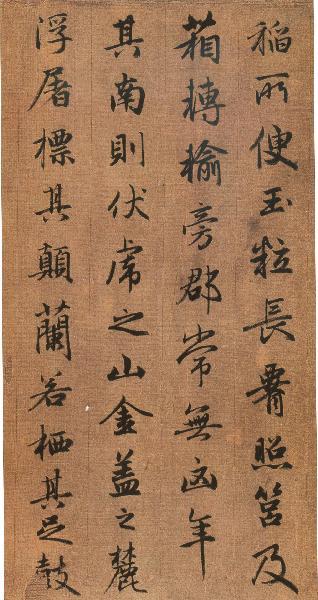 稻所便玉粒長腰照筥及
箱轉輸旁郡常無凶年
其南則伏虎之山金盖之麓
浮屠標其顛蘭若栖其足鼓